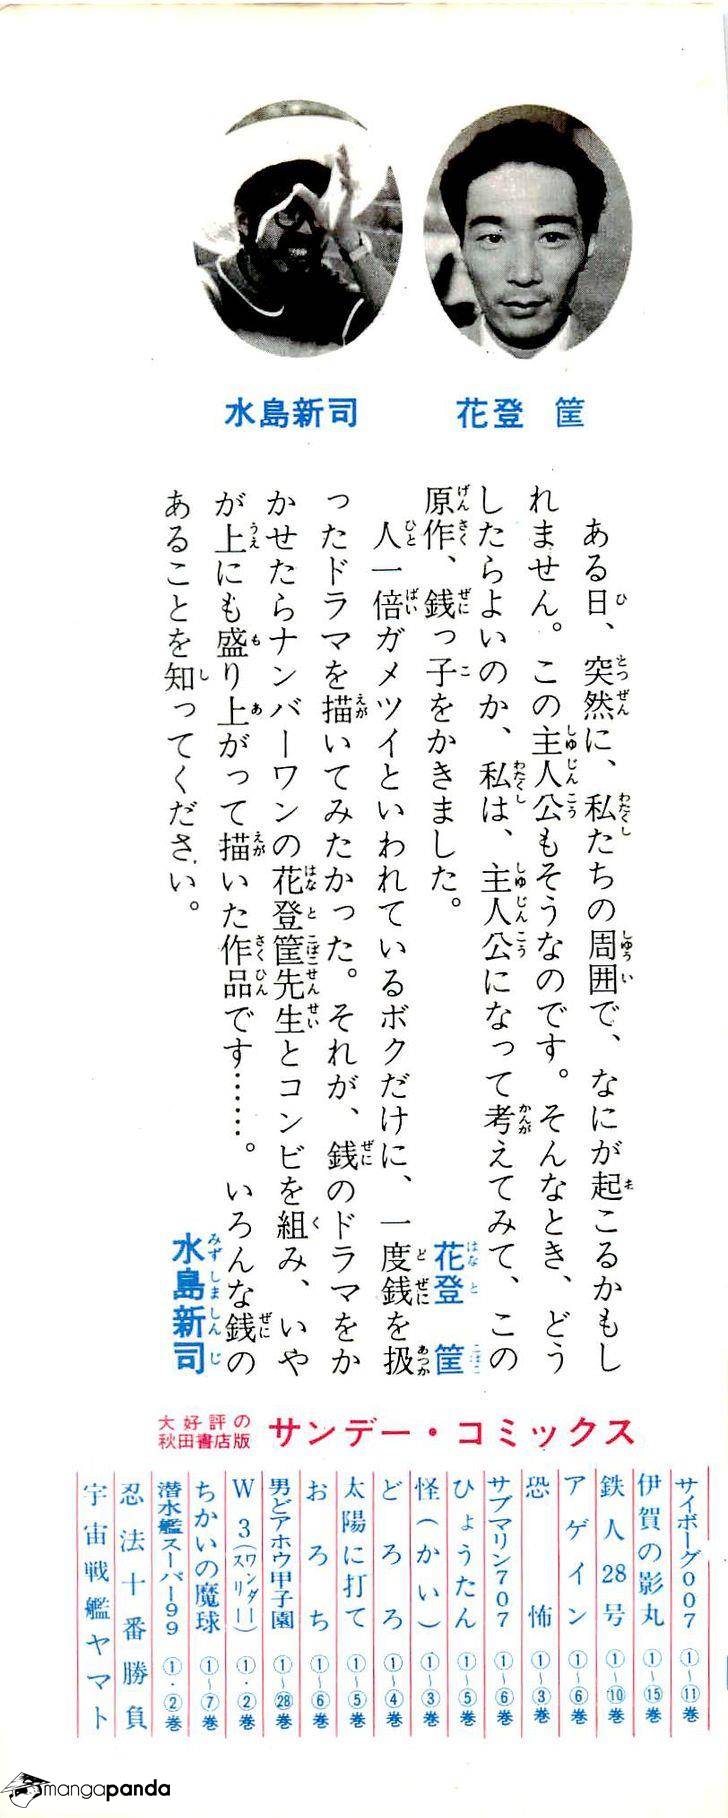 花登　筐
水島新司
ある日、突然に、私たちの周囲で、なにが起こるかもし
れません。この主人公もそうなのです。そんなとき、どう
したらよいのか、私は、主人公になって考えてみて、この
原作、銭っ子をかきました。
花登　筐
人一倍ガメツイといわれているボクだけに、一度銭を扱
ったドラマを描いてみたかった。それが、銭のドラマをか
かせたらナンバーワンの花登筐先生とコンビを組み、いや
が上にも盛り上がって描いた作品です……。いろんな銭の
あることを知ってください。
水島新司
大好評の
秋田書店版
サンデー・コミックス
サイボーグ007 ①~⑪巻
伊賀の影丸 ①~⑮巻
鉄人28号 ①~⑩巻
アゲイン ①~⑥巻
恐怖 ①~③巻
サブマリン707 ①~⑥巻
ひょうたん ①~⑤巻
怪(かい) ①~③巻
どろろ ①~④巻
太陽に打て ①~⑤巻
おろち ①~⑥巻
男どアホウ甲子園 ①~㉘巻
W3(ワンダースリー) ①・②巻
ちかいの魔球 ①~⑦巻
潜水艦スーパー99 ①・②巻
忍法十番勝負
宇宙戦艦ヤマト
mangapanda